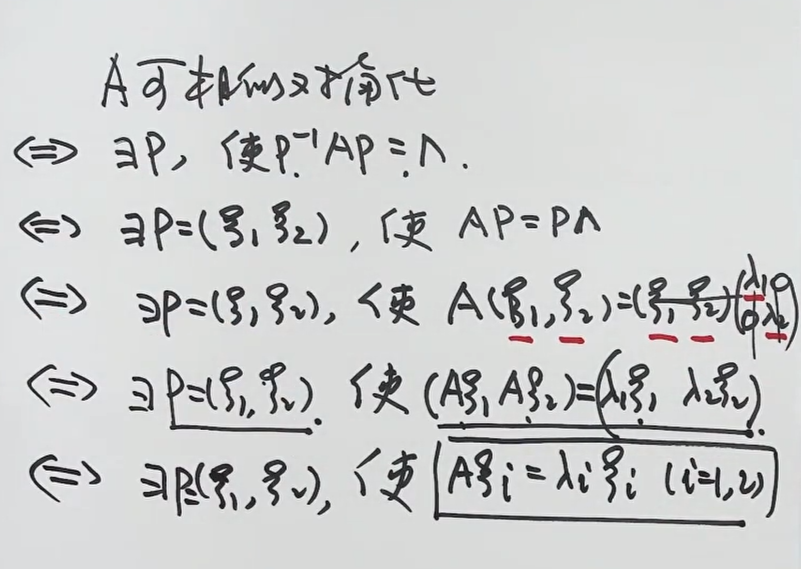 A可相似对角化
⇔ ∃P, 使P⁻¹AP=Λ.
⇔ ∃P=(ξ₁ ξ₂), 使 AP=PΛ
⇔ ∃P=(ξ₁ ξ₂), 使 A(ξ₁, ξ₂)=(ξ₁ ξ₂)(λ₁ 0 0 λ₂)
⇔ ∃P=(ξ₁, ξ₂). 使 (Aξ₁ Aξ₂)=(λ₁ξ₁ λ₂ξ₂).
⇔ ∃P=(ξ₁, ξ₂), 使 Aξᵢ=λᵢξᵢ (i=1,2)